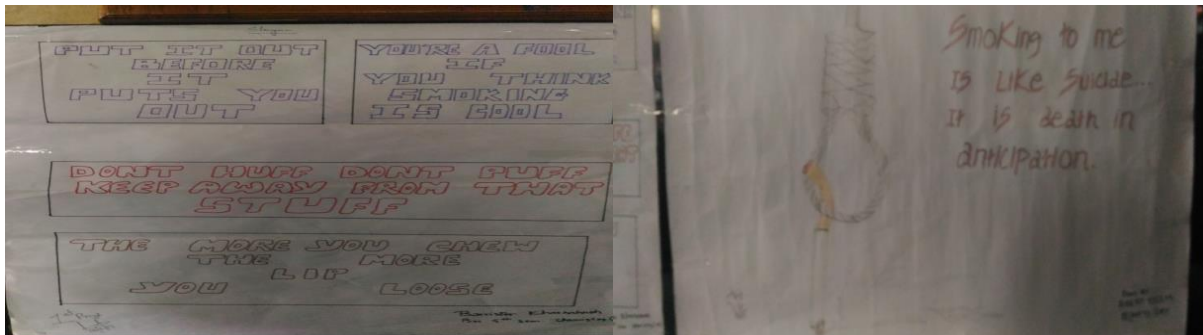 Slogan
PUT IT OUT
BEFORE
IT
PUTS YOU
OUT
YOU'RE A FOOL
IF
YOU THINK
SMOKING
IS COOL
DONT HUFF DONT PUFF
KEEP AWAY FROM THAT
STUFF
THE MORE YOU CHEW
THE MORE
LIP
YOU LOOSE
Smoking to me
Is Like Suicide...
It is death in
anticipation.